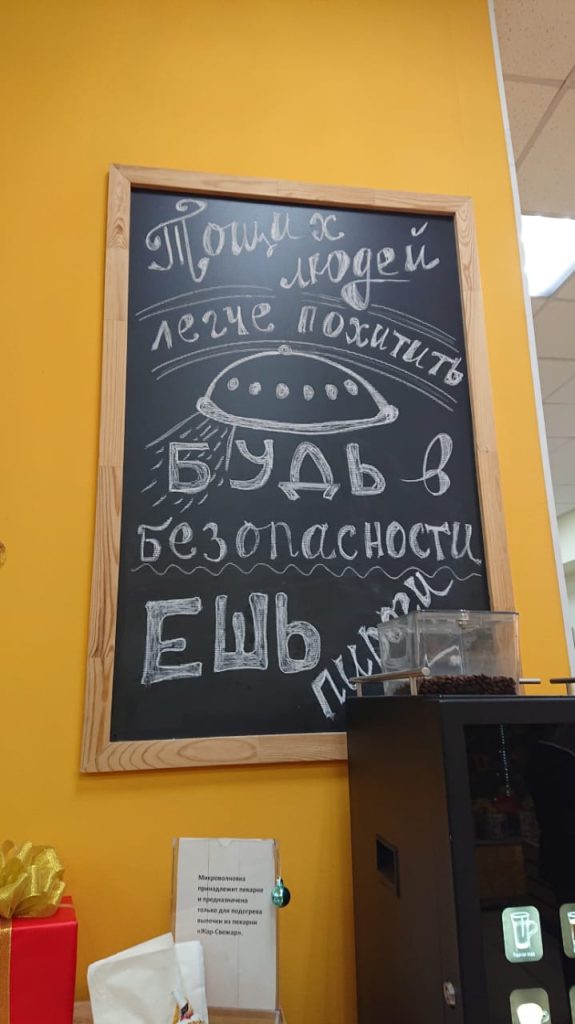 Тощих
людей
легче похитить
БУДЬ в
безопасности
ЕШЬ
пироги
Микроволновка
принадлежит пекарне
и предназначена
только для подогрева
выпечки из пекарни
«Жар-Свежар».